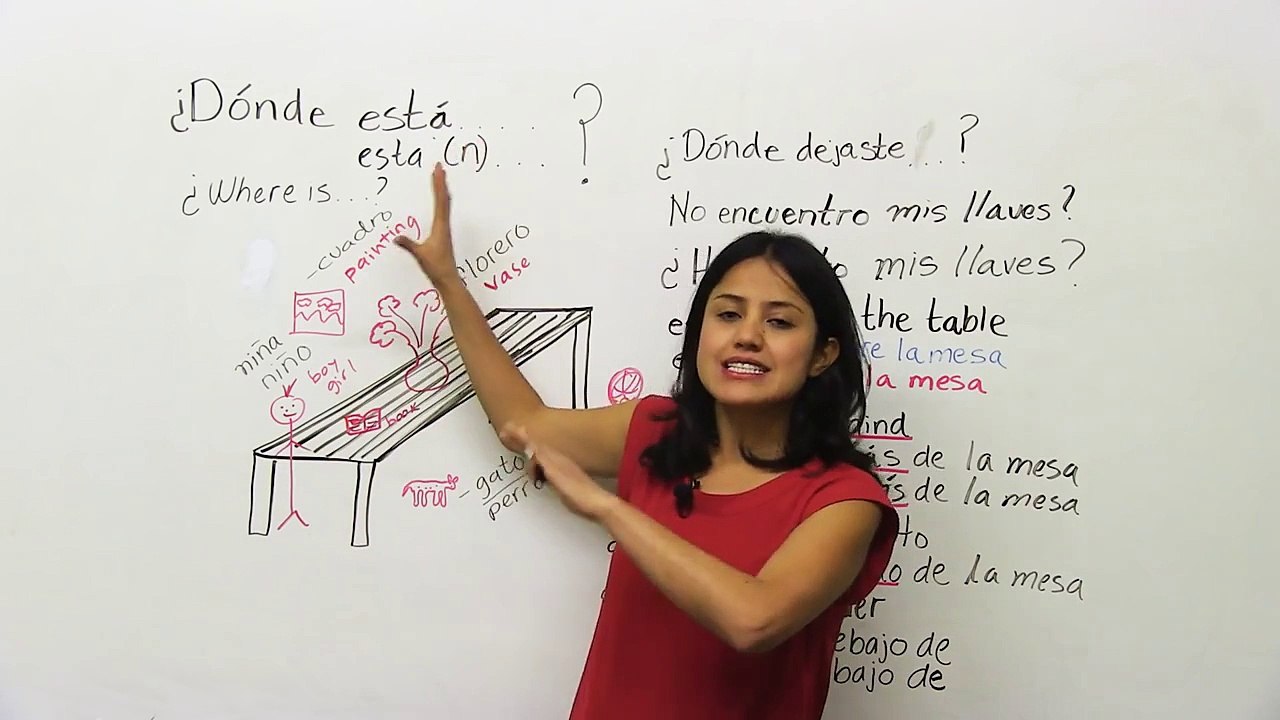 ¿Dónde está.....?
esta (n)...
¿Where is....?
-cuadro
painting
florero
vase
niña
niño
boy
girl
book
- gato
perro
¿Dónde dejaste.....?
No encuentro mis llaves?
mis llaves?
the table
la mesa
la mesa
de la mesa
de la mesa
de la mesa
de
de